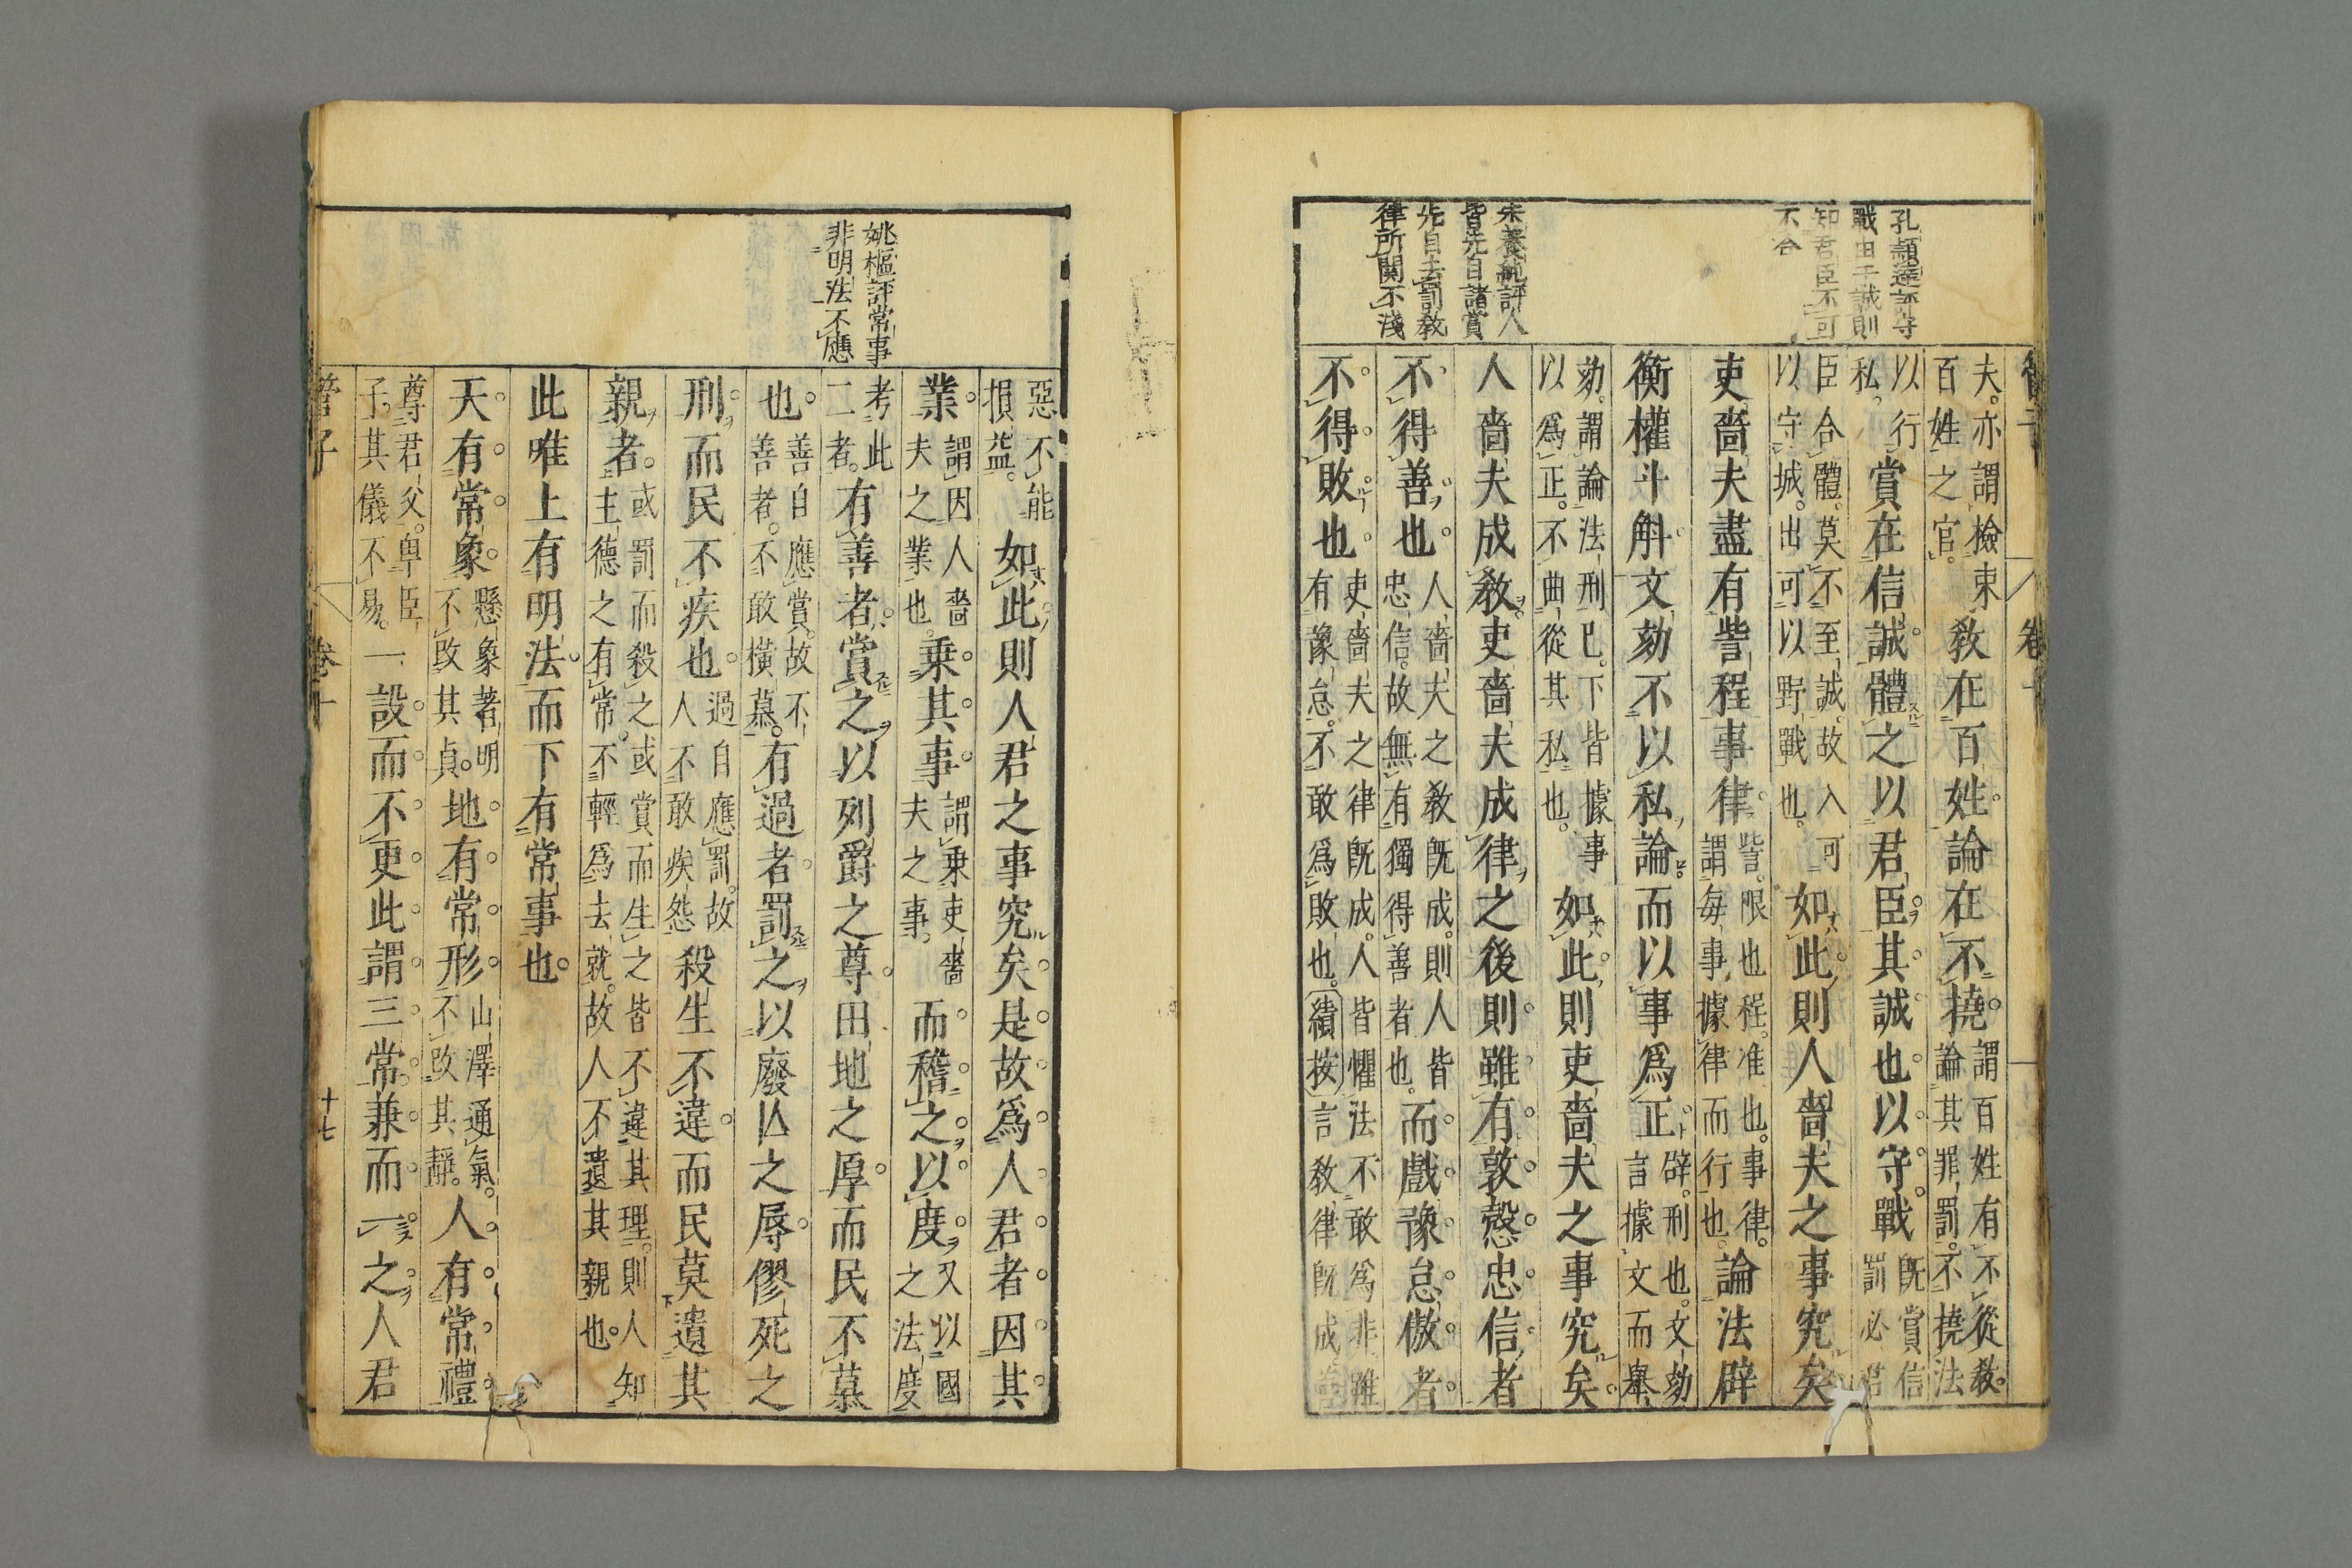 孔穎達評守
戰由于誠則
知君臣不可
不合
朱養純評人
皆先自諸賞
先自去罰教
律所関不淺
夫。亦謂檢束
百姓之官。
教在百姓論在不撓
謂百姓有不從教。
論其罪罰。不撓法
以行
私。
賞在信誠體之以君臣其誠也以守戰
既賞信
罰必君
臣合體。莫不至誠。故入可
以守城。出可以野戰也。
如此則人嗇夫之事究矣
吏嗇夫盡有訾程事律
訾。限也程。准也。事律。
謂每事據律而行也。
論法辟
衡權斗斛文劾不以私論而以事爲正
辟。刑也。文劾
言據文而舉
劾。謂論法刑已。下皆據事
以爲正。不曲從其私也。
如此則吏嗇夫之事究矣
人嗇夫成教吏嗇夫成律之後則雖有敦慤忠信者
不得善也
人嗇夫之教既成。則人皆
忠信。故無有獨得善者也。
而戲豫怠傲者
不得敗也
吏嗇夫之律既成。人皆懼法不敢爲非雖
有豫怠。不敢爲敗也。績按言教律既成善
管子
卷十
惡不能
損益。
如此則人君之事究矣是故爲人君者因其
業
謂因人嗇
夫之業也。
乗其事
謂乗吏嗇
夫之事。
而稽之以度
又以國
之法度
考此
二者。
有善者賞之以列爵之尊田地之厚而民不慕
也
善自應賞。故不
善者。不敢橫慕。
有過者罰之以廢亾之辱僇死之
刑而民不疾也
過自應罰。故
人不敢疾怨
殺生不違而民莫遺其
親者
或罰而殺之或賞而生之皆不違其理。則人知
主德之有常。不輕爲去就。故人不遺其親也。
此唯上有明法而下有常事也
天有常象
懸象著明
不改其貞。
地有常形
山澤通氣。
不改其靜。
人有常禮
尊君父。卑臣
子。其儀不易。
一設而不更此謂三常兼而一之人君
姚樞評常事
非明法不應
管子
卷十
十七